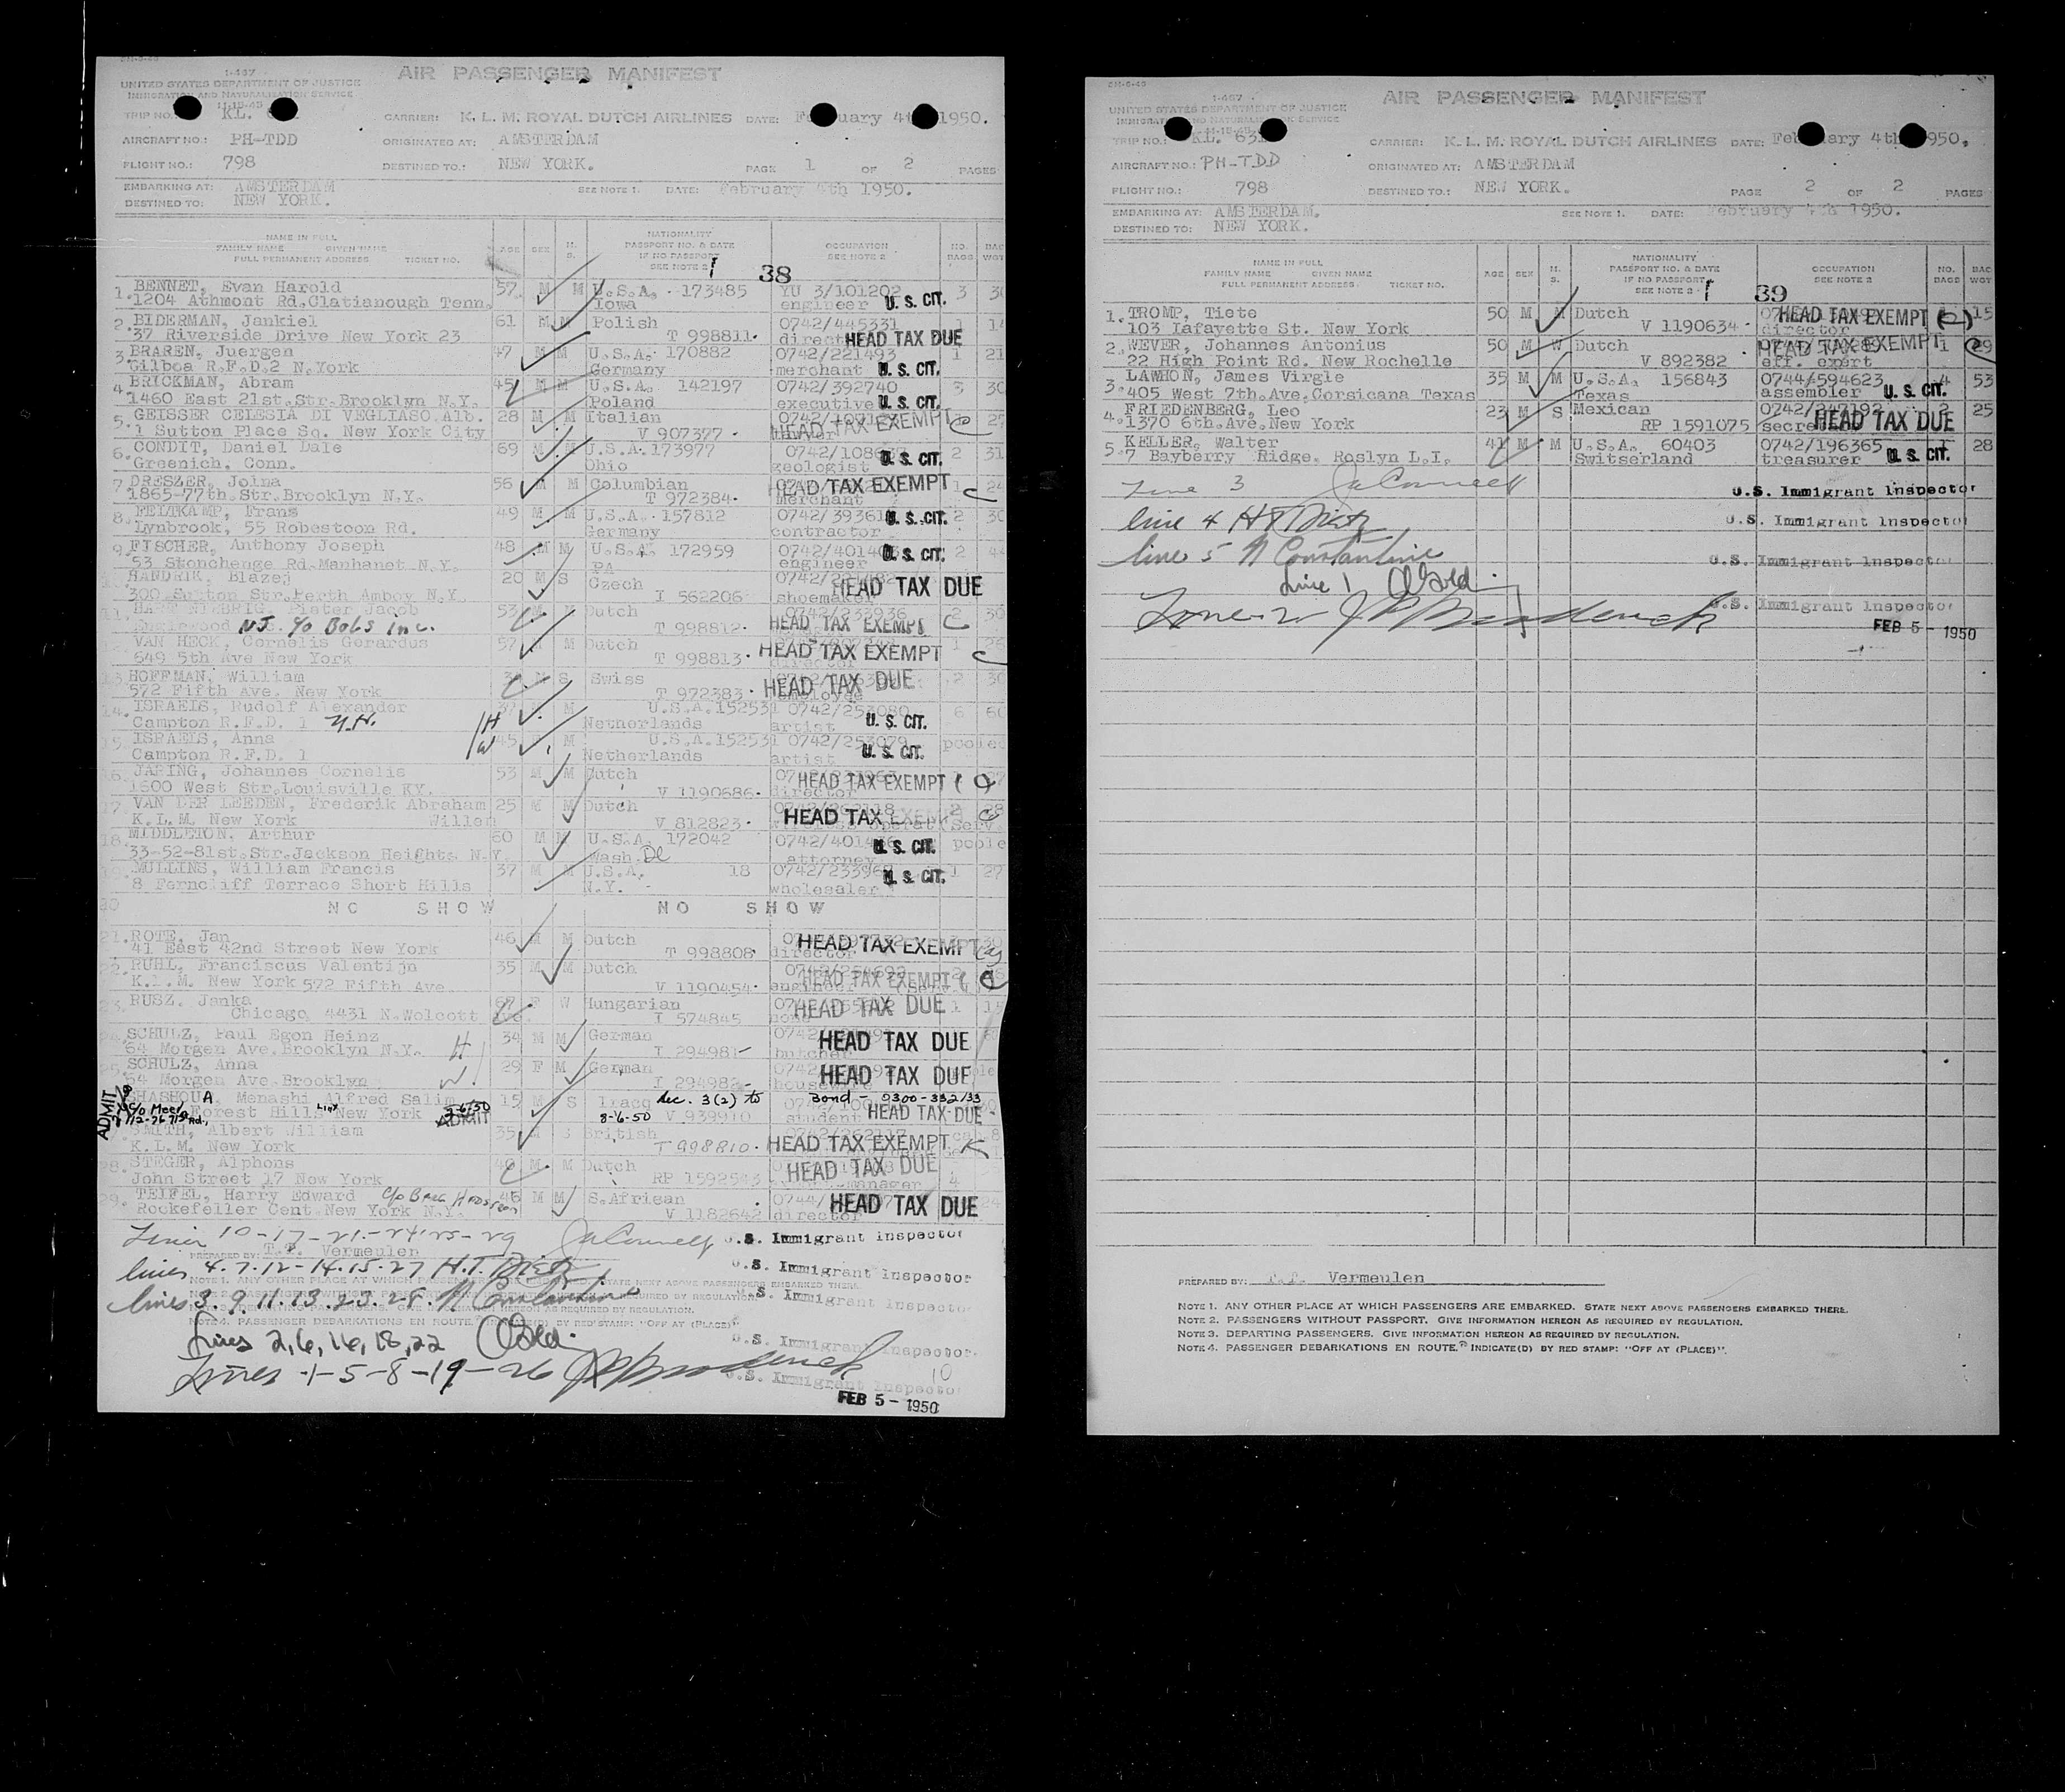 I-467
AIR PASSENGER MANIFEST
UNITED STATES DEPARTMENT OF JUSTICE
IMMIGRATION AND NATURALIZATION SERVICE
11-15-45
TRIP NO.: KL. CARRIER: K. L. M. ROYAL DUTCH AIRLINES DATE: February 4th 1950.
AIRCRAFT NO.: PH-TDD ORIGINATED AT: AMSTERDAM
FLIGHT NO.: 798 DESTINED TO.: NEW YORK. PAGE 1 OF 2 PAGES
EMBARKING AT: AMSTERDAM SEE NOTE 1. DATE: February 4th 1950.
DESTINED TO: NEW YORK.
NAME IN FULL NATIONALITY
FAMILY NAME GIVEN NAME AGE SEX M. S. PASSPORT NO. & DATE OCCUPATION NO. BAGS
FULL PERMANENT ADDRESS. TICKET NO. IF NO PASSPORT SEE NOTE 2 SEE NOTE 2
38
1. BENNET, Evan Harold 57 M M U.S.A. 173485 YU 3/101202 3
1204 Athmont Rd,Clatianough Tenn. Iowa engineer U. S. CIT.
2. BIDERMAN, Jankiel 61 M M Polish 0742/445331
37 Riverside Drive New York 23 T 998811. HEAD TAX DUE
3. BRAREN, Juergen 47 M M U.S.A. 170882 0742/221493 1 21
Gilboa R.F.D.2 N.York Germany merchant U. S. CIT.
4. BRICKMAN, Abram 45 M M U.S.A. 142197 0742/392740 3 30
1460 East 21st.Str.Brooklyn N.Y. Poland executive U. S. CIT.
5. GEISSER CELESIA DI VEGLIASO Alb. 28 M M Italian
1 Sutton Place Sq. New York City V 907377 HEAD TAX EXEMPT
6. CONDIT, Daniel Dale 69 M M U.S.A. 173977 2 31
Greenich, Conn. Ohio geologist U. S. CIT.
7. DRESZER, Joina 56 M M Columbian
1865-77th.Str.Brooklyn N.Y. T 972384. merchant HEAD TAX EXEMPT
8. FELTKAMP, Frans 49 M M U.S.A. 157812 2 30
Lynbrook, 55 Robestoon Rd. Germany contractor U. S. CIT.
9. FISCHER, Anthony Joseph 48 M M U.S.A. 172959 2
53 Stonchenge Rd.Manhanet N.Y. PA engineer U. S. CIT.
HANDRIK, Blazej 20 M S Czech
300 Sutton Str.Perth Amboy N.Y. I 562206 shoemaker HEAD TAX DUE
11. Pieter Jacob 53 M Dutch 0742/233936 2 30
Englewood N.J. c/o Bobs Inc. T 998812. HEAD TAX EXEMPT
VAN HECK, Cornelis Gerardus 57 M Dutch 1
649 5th Ave New York T 998813. director HEAD TAX EXEMPT
13. HOFFMAN, William M S Swiss 2 30
572 Fifth Ave. New York T 972383. employee HEAD TAX DUE
14. ISRAELS, Rudolf Alexander M U.S.A.152531 0742/253080 6 60
Campton R.F.D. 1 N.H. H Netherlands artist U. S. CIT.
15. ISRAELS, Anna 45 M U.S.A.152531 0742/253079 pooled
Campton R.F.D. 1 W Netherlands artist U. S. CIT.
16. JARING, Johannes Cornelis 53 M M Dutch
1600 West Str.Louisville KY. V 1190686. director HEAD TAX EXEMPT
17. VAN DER LEEDEN, Frederik Abraham 25 M M Dutch 0742/262118 2 28
K.L.M. New York Willem V 812823. HEAD TAX EXEMPT
18. MIDDLETON, Arthur 60 M M U.S.A. 172042 poole
33-52-81st.Str.Jackson Heights N.Y. Wash. DC attorney U. S. CIT.
MULLINS, William Francis 37 M M U.S.A. 18 1 27
8 Ferncliff Terrace Short Hills N.Y. wholesaler U. S. CIT.
20 NO SHOW NO SHOW
21. ROTE, Jan 46 M M Dutch
41 East 42nd Street New York T 998808 director HEAD TAX EXEMPT
RUHL, Franciscus Valentijn 35 M M Dutch 2
K.L.M. New York 572 Fifth Ave. V 1190454. engineer HEAD TAX EXEMPT
23. RUSZ, Janka 67 F W Hungarian 1
Chicago, 4431 N.Wolcott Ave. I 574845 none HEAD TAX DUE
SCHULZ, Paul Egon Heinz 34 M M German
64 Morgen Ave.Brooklyn N.Y. H I 294981 butcher HEAD TAX DUE
25. SCHULZ, Anna 29 F M German
64 Morgen Ave.Brooklyn W. I 294982 housewife HEAD TAX DUE
SHASHOUA, Menashi Alfred Salim 15 M S Iracq Sec. 3(2) to Bond - 9300-332/33
ADMIT c/o 112-26 71st Rd., Forest Hills New York ADMIT 8-6-50 V 939910 student HEAD TAX DUE
SMITH, Albert William 35 M S British 0742/262117
K.L.M. New York T 998810. HEAD TAX EXEMPT
28. STEGER, Alphons 40 M M Dutch
John Street 17 New York RP 1592543 manager HEAD TAX DUE 4
29. TEIFEL, Harry Edward c/o 46 M M S.African 0744/
Rockefeller Cent.New York N.Y. V 1182642 director HEAD TAX DUE
Lines 10-17-21-24-25-29 U.S. Immigrant Inspector
PREPARED BY: T.T. Vermeulen
lines 4.7.12-14.15.27 H.T. Dietz U.S. Immigrant Inspector
lines 3.9.11.13.23.28. N Constantine U.S. Immigrant Inspector
NOTE 4. PASSENGER DEBARKATIONS EN ROUTE. INDICATE(D) BY RED STAMP: "OFF AT (PLACE)"
Lines 2,6,16,18,22 U.S. Immigrant Inspector
Lines -1-5-8-19-26 U.S. Immigrant Inspector
10
FEB 5 - 1950
I-467
AIR PASSENGER MANIFEST
UNITED STATES DEPARTMENT OF JUSTICE
IMMIGRATION AND NATURALIZATION SERVICE
11-15-45
TRIP NO.: KL. 63 CARRIER: K. L. M. ROYAL DUTCH AIRLINES DATE: February 4th 1950.
AIRCRAFT NO.: PH-TDD ORIGINATED AT: AMSTERDAM
FLIGHT NO.: 798 DESTINED TO.: NEW YORK. PAGE 2 OF 2 PAGES
EMBARKING AT: AMSTERDAM. SEE NOTE 1. DATE: February 4th 1950.
DESTINED TO: NEW YORK.
NAME IN FULL NATIONALITY
FAMILY NAME GIVEN NAME AGE SEX M. S. PASSPORT NO. & DATE OCCUPATION NO. BAGS
FULL PERMANENT ADDRESS. TICKET NO. IF NO PASSPORT SEE NOTE 2 SEE NOTE 2
39
1. TROMP, Tiete 50 M M Dutch 15
103 Lafayette St. New York V 1190634. director HEAD TAX EXEMPT
2. WEVER, Johannes Antonius 50 M W Dutch 1 29
22 High Point Rd. New Rochelle V 892382 eff. expert HEAD TAX EXEMPT
3. LAWHON, James Virgle 35 M M U.S.A. 156843 0744/594623 4 53
405 West 7th.Ave.Corsicana Texas Texas assembler U. S. CIT.
4. FRIEDENBERG, Leo 23 M S Mexican 0742/247192 2 25
1370 6th.Ave.New York RP 1591075 HEAD TAX DUE
5. KELLER, Walter 41 M M U.S.A. 60403 0742/196365 1 28
7 Bayberry Ridge. Roslyn L.I. Switserland treasurer U. S. CIT.
Line 3 U.S. Immigrant Inspector
line 4 H T Dietz U.S. Immigrant Inspector
line 5 N Constantine U.S. Immigrant Inspector
Line 1
U.S. Immigrant Inspector
FEB 5 - 1950
PREPARED BY: T.T. Vermeulen
NOTE 1. ANY OTHER PLACE AT WHICH PASSENGERS ARE EMBARKED. STATE NEXT ABOVE PASSENGERS EMBARKED THERE.
NOTE 2. PASSENGERS WITHOUT PASSPORT. GIVE INFORMATION HEREON AS REQUIRED BY REGULATION.
NOTE 3. DEPARTING PASSENGERS. GIVE INFORMATION HEREON AS REQUIRED BY REGULATION.
NOTE 4. PASSENGER DEBARKATIONS EN ROUTE. INDICATE(D) BY RED STAMP: "OFF AT (PLACE)".